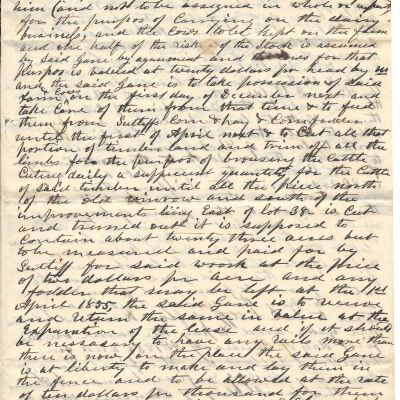 him (and not to be assigned in whole or part
for the purpos of Carrying on the dairy
business, and the Cows to be kept on the farm
and one half of the risk of the Stock is assumed
by said Gane by agreement and for that
purpos is valued at twenty dollars pr head by
and the said Gane is to take possession of said
farm Cows on the first day of December next and
take Care of them from that time & to feed
them from Sutliffs Corn & hay & Cornfodder
until the first of April next & to Cut all that
portion of timber land and trim off all the
limbs for the purpos of browsing the Cattle
Cuting daily a sufficient quantity for the Cattle
of said timber until all the piece north
of the old and south of the
improvements liing East of lot 38 is Cut
and trimed out it is supposed to
Contain about twenty three acres but
to be measured and paid for by
Sutliff for said work at the price
of two dollars pr acre and any
fodder that may be left at the 1st
April 1855, the said Gane is to receive
and return the same in value at the
Expiration of the lease and if it should
be nessasary to have any rails more than
there is now on the place the said Gane
is at liberty to make and lay them in
the fence and to be allowed at the rate
of ten dollars pr thousand for them